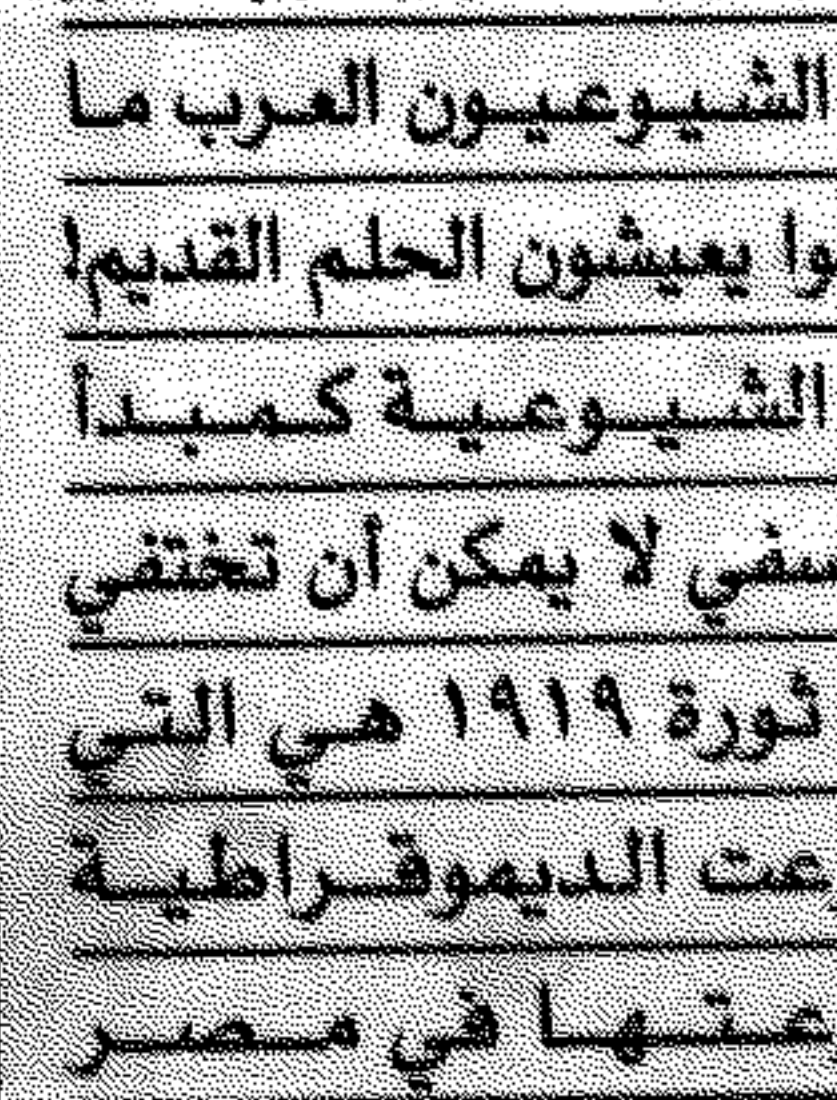 الشيوعيون العرب ما
وا يعيشون الحلم القديم!
الشيوعية كمبدأ
سفي لا يمكن أن تختفي
ثورة ١٩١٩ هي التي
عت الديموقراطية
عتها في مصر